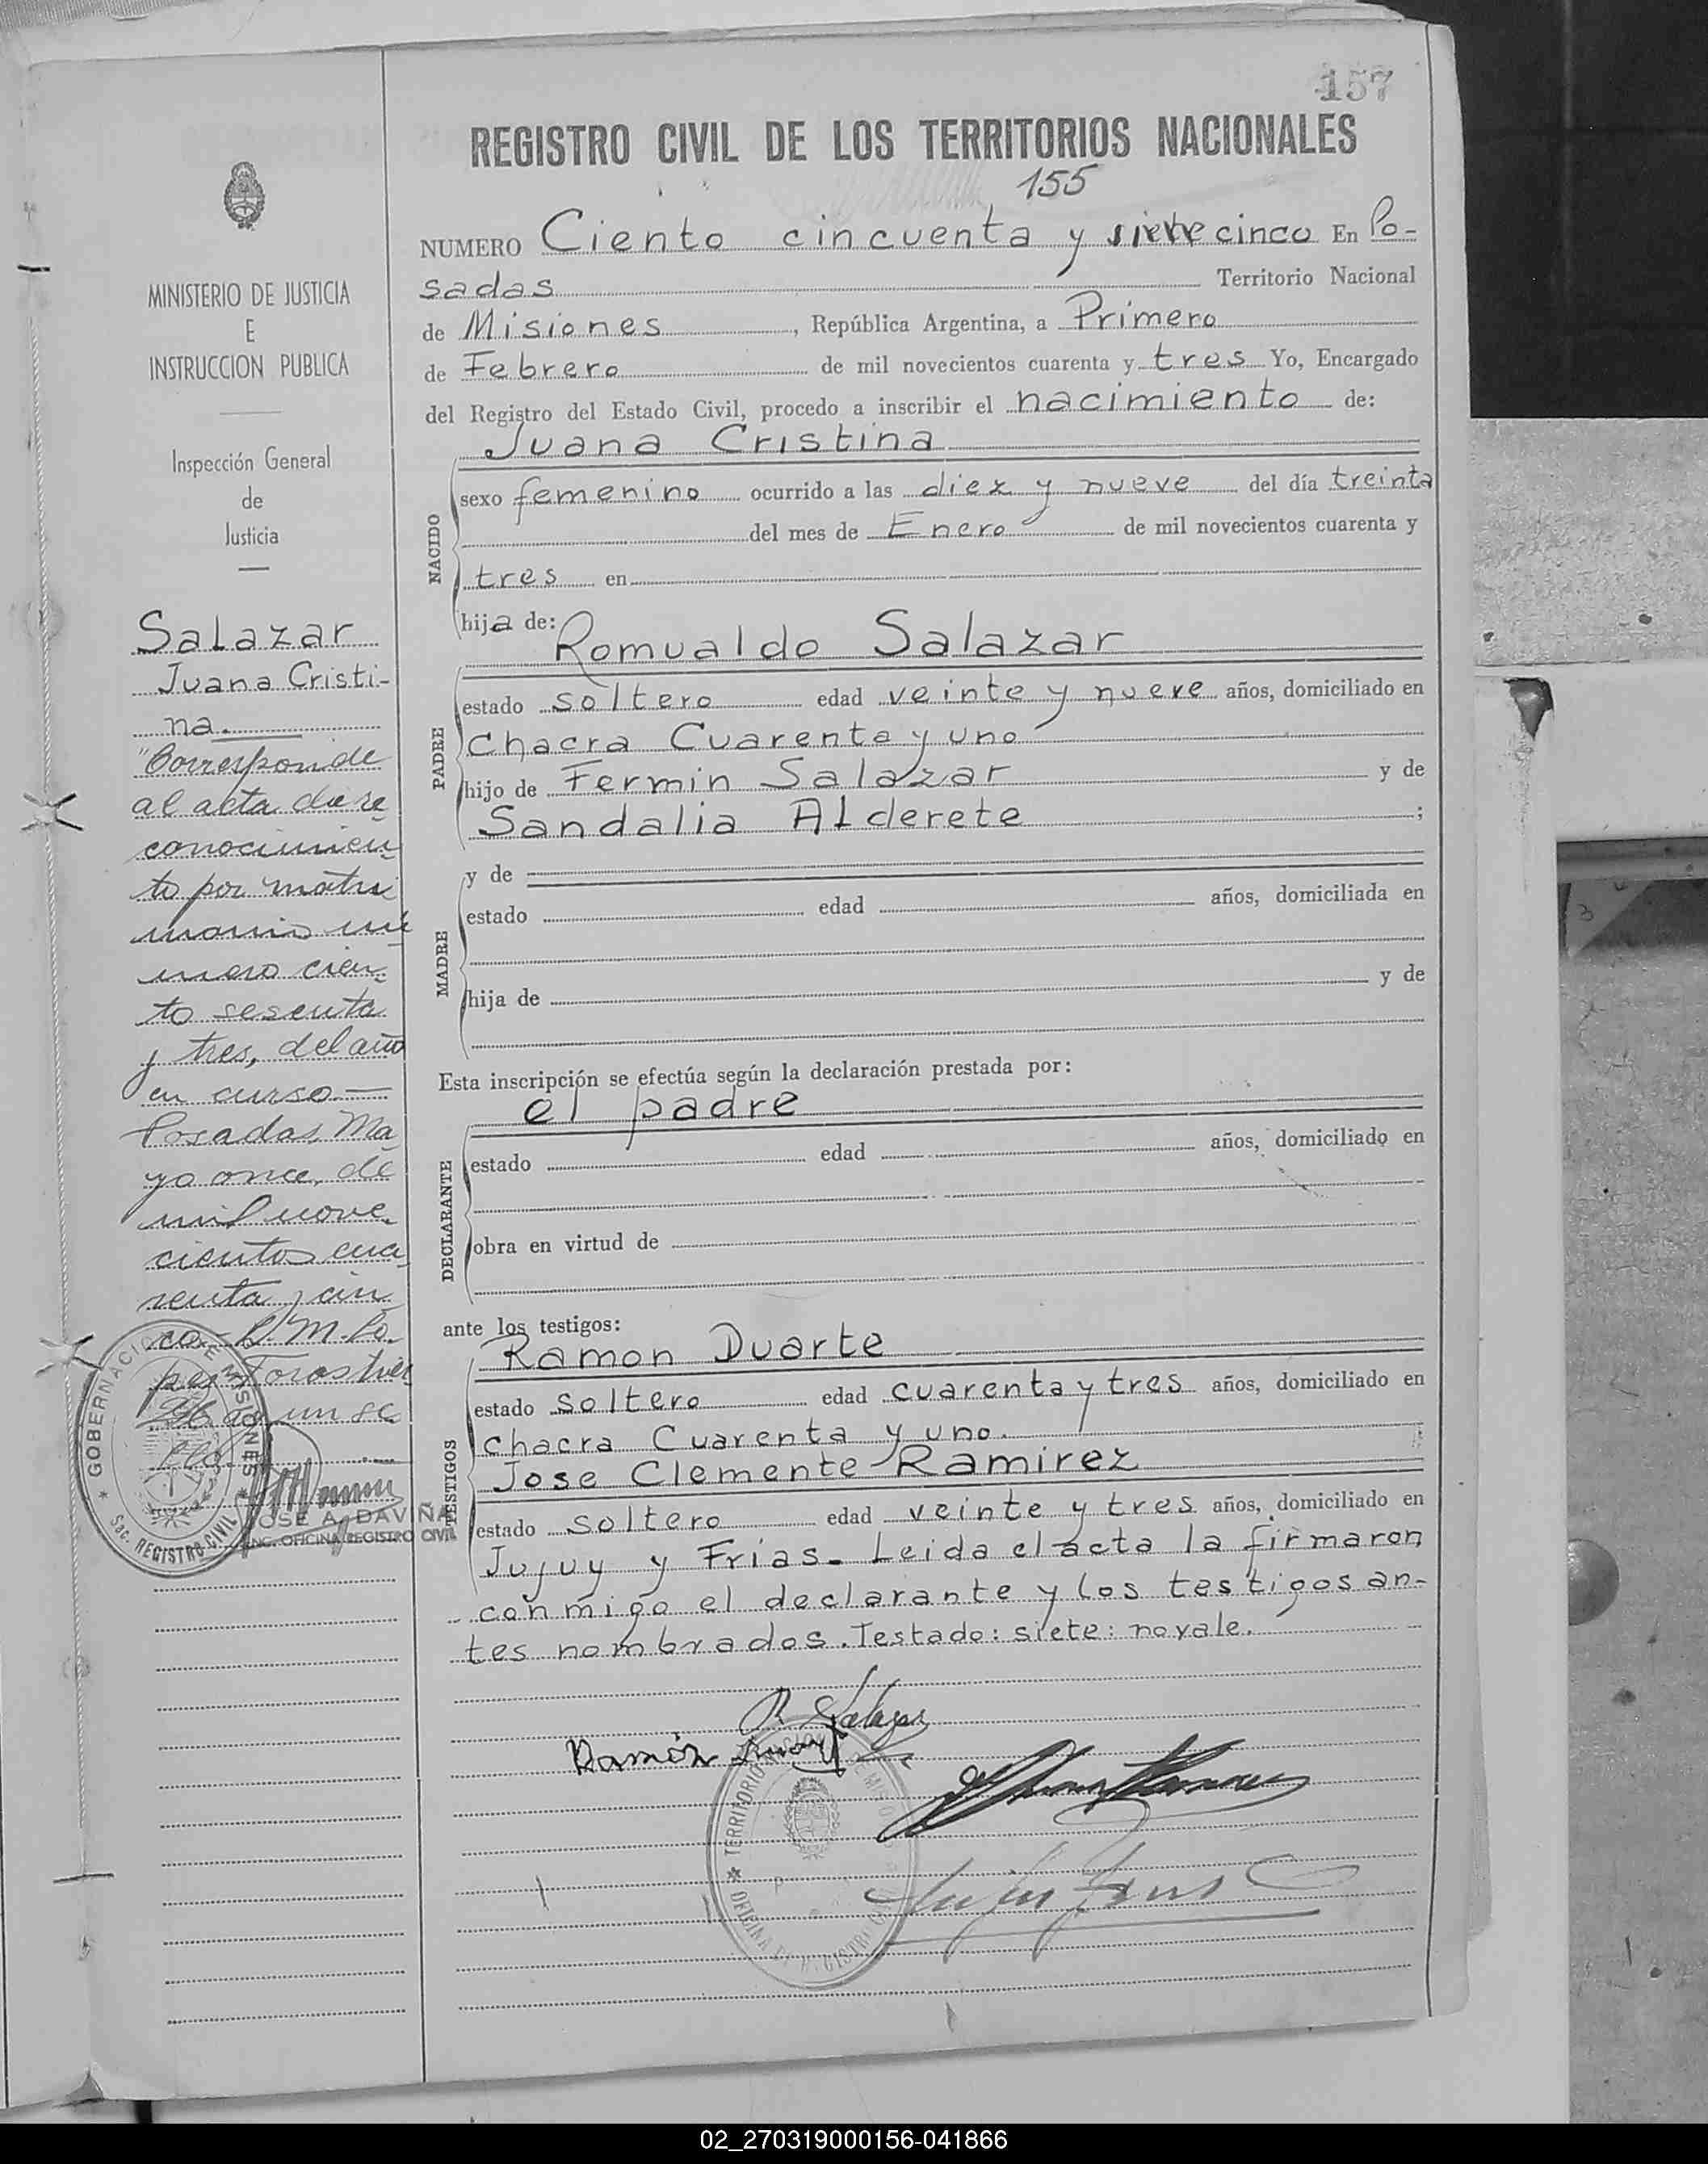 157
REGISTRO CIVIL DE LOS TERRITORIOS NACIONALES
155
NUMERO Ciento cincuenta y siete cinco En Po-
sadas Territorio Nacional
de Misiones, República Argentina, a Primero
de Febrero de mil novecientos cuarenta y tres Yo, Encargado
del Registro del Estado Civil, procedo a inscribir el nacimiento de:
Juana Cristina
NACIDO
sexo femenino ocurrido a las diez y nueve del día treinta
del mes de Enero de mil novecientos cuarenta y
tres en
hija de:
Romualdo Salazar
PADRE
estado soltero edad veinte y nueve años, domiciliado en
Chacra Cuarenta y uno
hijo de Fermin Salazar y de
Sandalia Alderete ;
MADRE
y de
estado edad años, domiciliada en
hija de y de
Esta inscripción se efectúa según la declaración prestada por:
el padre
DECLARANTE
estado edad años, domiciliado en
obra en virtud de
ante los testigos:
Ramon Duarte
TESTIGOS
estado soltero edad cuarenta y tres años, domiciliado en
Chacra Cuarenta y uno.
Jose Clemente Ramirez
estado soltero edad veinte y tres años, domiciliado en
Jujuy y Frias. Leida el acta la firmaron
conmigo el declarante y los testigos an-
tes nombrados. Testado: siete: no vale.
R Salazar
Ramón
TERRITORIO
OFICINA
MINISTERIO DE JUSTICIA
E
INSTRUCCION PUBLICA
Inspección General
de
Justicia
Salazar
Juana Cristi-
na.
"Corresponde
al acta de re
conocimien-
to por matri
monio nú
mero cien-
to sesenta
y tres, del año
en curso—
Posadas, Ma
yo once, de
mil nove-
cientos cua
renta y cin
co
un se
GOBERNACION DE MISIONES
Sec. REGISTRO CIVIL
JOSE A. DAVIÑA
ENC. OFICINA REGISTRO CIVIL
02_270319000156-041866